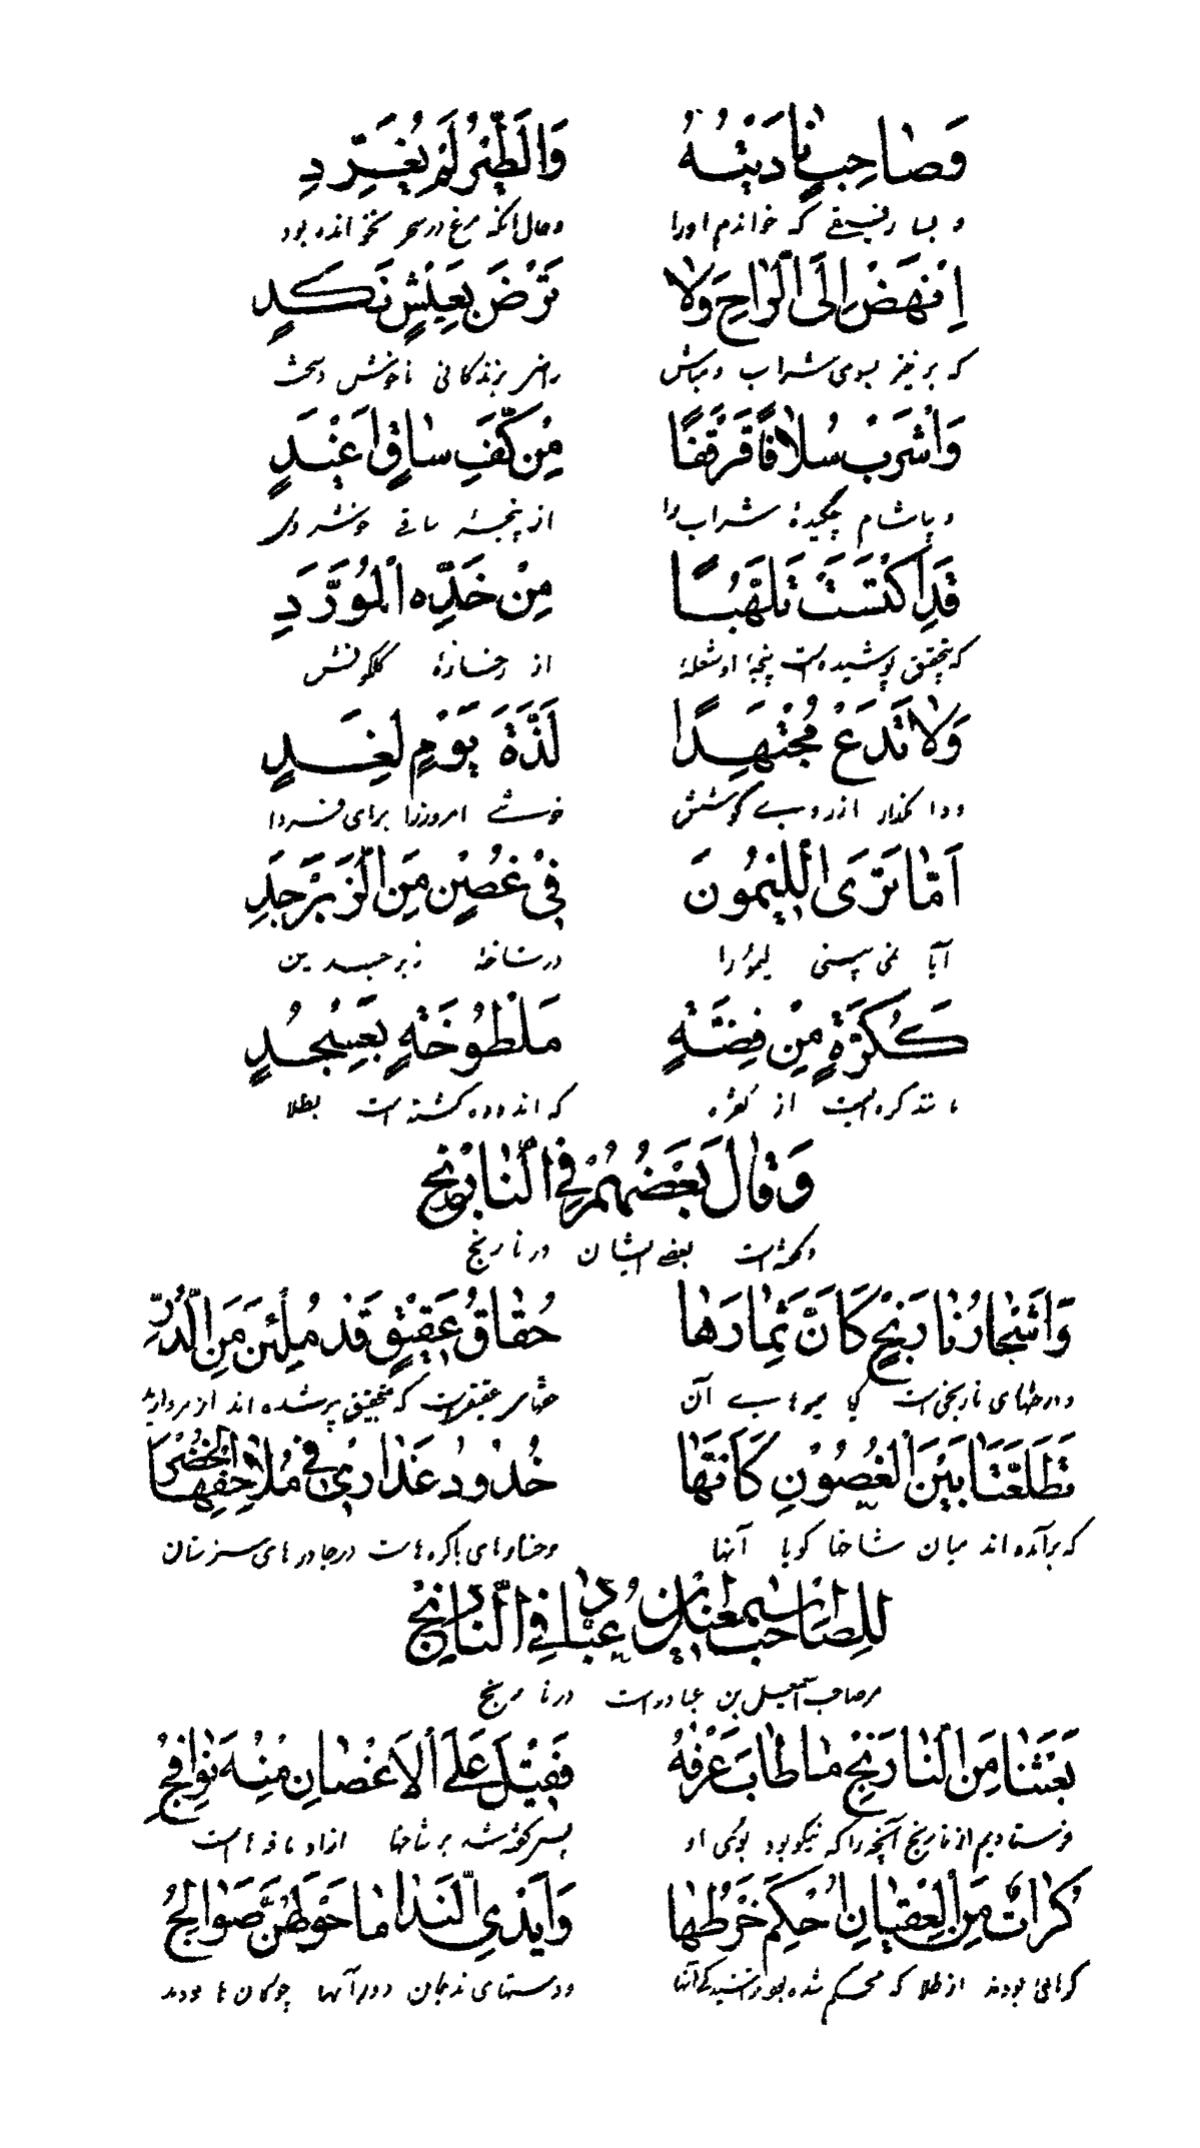 وَصَاحِبٍ نَادَيْتُهُ وَالطَّيْرُ لَمْ يُغَرِّدِ
و بسا رفیقے که خواندم اورا وحال آنکه مرغ در سحر نخوانده بود
اِنْهَضْ اِلَى الرَّاحِ وَلَا تَرْضَ بِعَيْشٍ نَكَدٍ
که برخیز بسوی شراب و مباش راضی بزندگانی ناخوش وسخت
وَاشْرَبْ سُلَافًا قَرْقَفًا مِنْ كَفِّ سَاقٍ اَغْيَدٍ
و بیاشام چکیدۂ شراب را از پنجۂ ساقے
قَدِ اكْتَسَتْ تَلَهُّبًا مِنْ خَدِّهِ الْمُوَرَّدِ
که بتحقیق پوشیده است پنجۂ او شعلۂ از رخسارۂ گلگونش
وَلَا تَدَعْ مُجْتَهِدًا لَذَّةَ يَوْمٍ لِغَدٍ
و وا مگذار از روے کوشش خوشے امروز را برای فردا
اَمَا تَرَى اللَّيْمُونَ فِيْ غُصْنٍ مِنَ الزَّبَرْجَدِ
آیا نمی بینی لیمو را در شاخۂ زبرجدین
كَكُرَةٍ مِنْ فِضَّةٍ مَلْطُوخَةٍ بِعَسْجُدٍ
مانند کره است از نقره که اندوده گشته است بطلا
وَقَالَ بَعْضُهُمْ فِي النَّارَنْجِ
وگفته است بعضے ایشان در نارنج
وَاَشْجَارُ نَارَنْجٍ كَاَنَّ ثِمَارَهَا حُقَاقُ عَقِيْقٍ قَدْ مُلِئْنَ مِنَ الدُّرِّ
ودرختهای نارنجی است گویا میوهاے آن حقهاے عقیق است که بتحقیق پر شده اند از مروارید
تَطَلَّعْنَا بَيْنَ الْغُصُوْنِ كَاَنَّهَا خُدُوْدُ عَذَارَىٰ فِي مَلَاحِفِهَا الْخُضْرِ
که برآمده اند میان شاخها گویا آنها رخسارهای باکره هاست در چادرهای سبزشان
لِلصَّاحِبِ اِسْمٰعِيْلَ بْنِ عَبَّادٍ فِي النَّارَنْجِ
مر صاحب اسمعیل بن عباد راست در نارنج
بَعَثْنَا مِنَ النَّارَنْجِ مَا طَابَ عَرْفُهُ فَقِيْلَ عَلَى الْاَغْصَانِ مِنْهُ نَوَافِجُ
فرستادیم از نارنج آنچه را که نیکو بود بوئی او پس گفته شد بر شاخها ازاو نافه هاست
كُرَاتٌ مِنَ الْعِقْيَانِ اُحْكِمَ خَرْطُهَا وَاَيْدِي النَّدَامَا حَوْلَهُنَّ صَوَالِجُ
کرهائی بودند از طلا که محکم شده بود تراشیدگے آنها ودستهای ندیمان دور آنها چوگان ها بودند